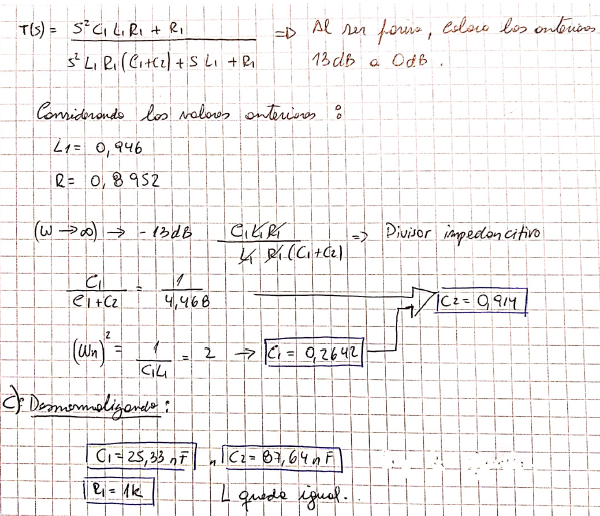 T(s) = (S² C1 L1 R1 + R1) / (S² L1 R1 (C1+C2) + S L1 + R1) => Al ser , coloco los anteriores
13dB a 0dB.
Considerando los valores anteriores :
L1 = 0,946
R = 0,8952
(W → ∞) → -13dB C1 L1 R1 / L1 R1 (C1+C2) => Divisor impedancitivo
C1 / (C1+C2) = 1 / 4,468
C2 = 0,914
(Wn)² = 1 / (C1 L1) = 2 → C1 = 0,2642
C) Desnormalizando :
C1 = 25,33 nF C2 = 87,64 nF
R1 = 1k L queda igual.